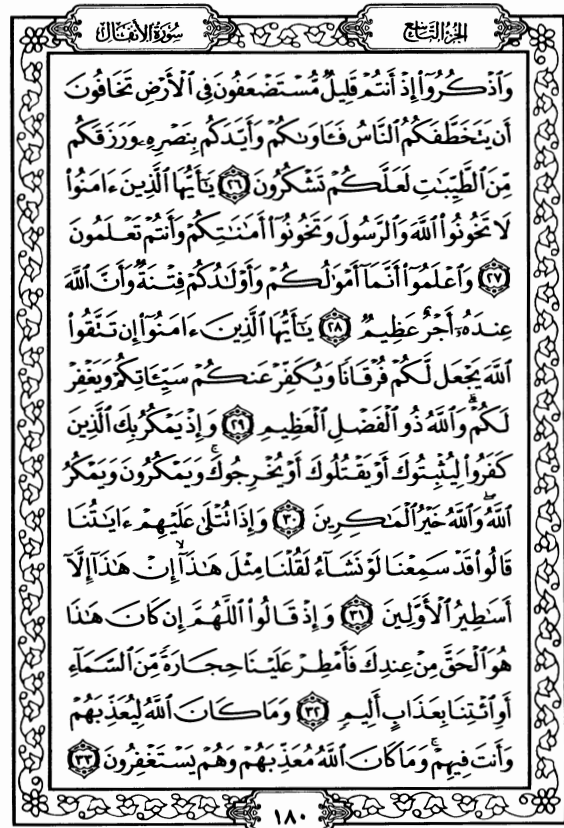 سُورَةُ الأَنفَالِ
الجُزْءُ التَّاسِعُ
وَٱذْكُرُوٓا۟ إِذْ أَنتُمْ قَلِيلٌ مُّسْتَضْعَفُونَ فِى ٱلْأَرْضِ تَخَافُونَ
أَن يَتَخَطَّفَكُمُ ٱلنَّاسُ فَـَٔاوَىٰكُمْ وَأَيَّدَكُم بِنَصْرِهِۦ وَرَزَقَكُم
مِّنَ ٱلطَّيِّبَـٰتِ لَعَلَّكُمْ تَشْكُرُونَ ٢٦ يَـٰٓأَيُّهَا ٱلَّذِينَ ءَامَنُوا۟
لَا تَخُونُوا۟ ٱللَّهَ وَٱلرَّسُولَ وَتَخُونُوٓا۟ أَمَـٰنَـٰتِكُمْ وَأَنتُمْ تَعْلَمُونَ
٢٧ وَٱعْلَمُوٓا۟ أَنَّمَآ أَمْوَٰلُكُمْ وَأَوْلَـٰدُكُمْ فِتْنَةٌ وَأَنَّ ٱللَّهَ
عِندَهُۥٓ أَجْرٌ عَظِيمٌ ٢٨ يَـٰٓأَيُّهَا ٱلَّذِينَ ءَامَنُوٓا۟ إِن تَتَّقُوا۟
ٱللَّهَ يَجْعَل لَّكُمْ فُرْقَانًا وَيُكَفِّرْ عَنكُمْ سَيِّـَٔاتِكُمْ وَيَغْفِرْ
لَكُمْ ۗ وَٱللَّهُ ذُو ٱلْفَضْلِ ٱلْعَظِيمِ ٢٩ وَإِذْ يَمْكُرُ بِكَ ٱلَّذِينَ
كَفَرُوا۟ لِيُثْبِتُوكَ أَوْ يَقْتُلُوكَ أَوْ يُخْرِجُوكَ ۚ وَيَمْكُرُونَ وَيَمْكُرُ
ٱللَّهُ ۖ وَٱللَّهُ خَيْرُ ٱلْمَـٰكِرِينَ ٣٠ وَإِذَا تُتْلَىٰ عَلَيْهِمْ ءَايَـٰتُنَا
قَالُوا۟ قَدْ سَمِعْنَا لَوْ نَشَآءُ لَقُلْنَا مِثْلَ هَـٰذَآ ۙ إِنْ هَـٰذَآ إِلَّآ
أَسَـٰطِيرُ ٱلْأَوَّلِينَ ٣١ وَإِذْ قَالُوا۟ ٱللَّهُمَّ إِن كَانَ هَـٰذَا
هُوَ ٱلْحَقَّ مِنْ عِندِكَ فَأَمْطِرْ عَلَيْنَا حِجَارَةً مِّنَ ٱلسَّمَآءِ
أَوِ ٱئْتِنَا بِعَذَابٍ أَلِيمٍ ٣٢ وَمَا كَانَ ٱللَّهُ لِيُعَذِّبَهُمْ
وَأَنتَ فِيهِمْ ۚ وَمَا كَانَ ٱللَّهُ مُعَذِّبَهُمْ وَهُمْ يَسْتَغْفِرُونَ ٣٣
١٨٠